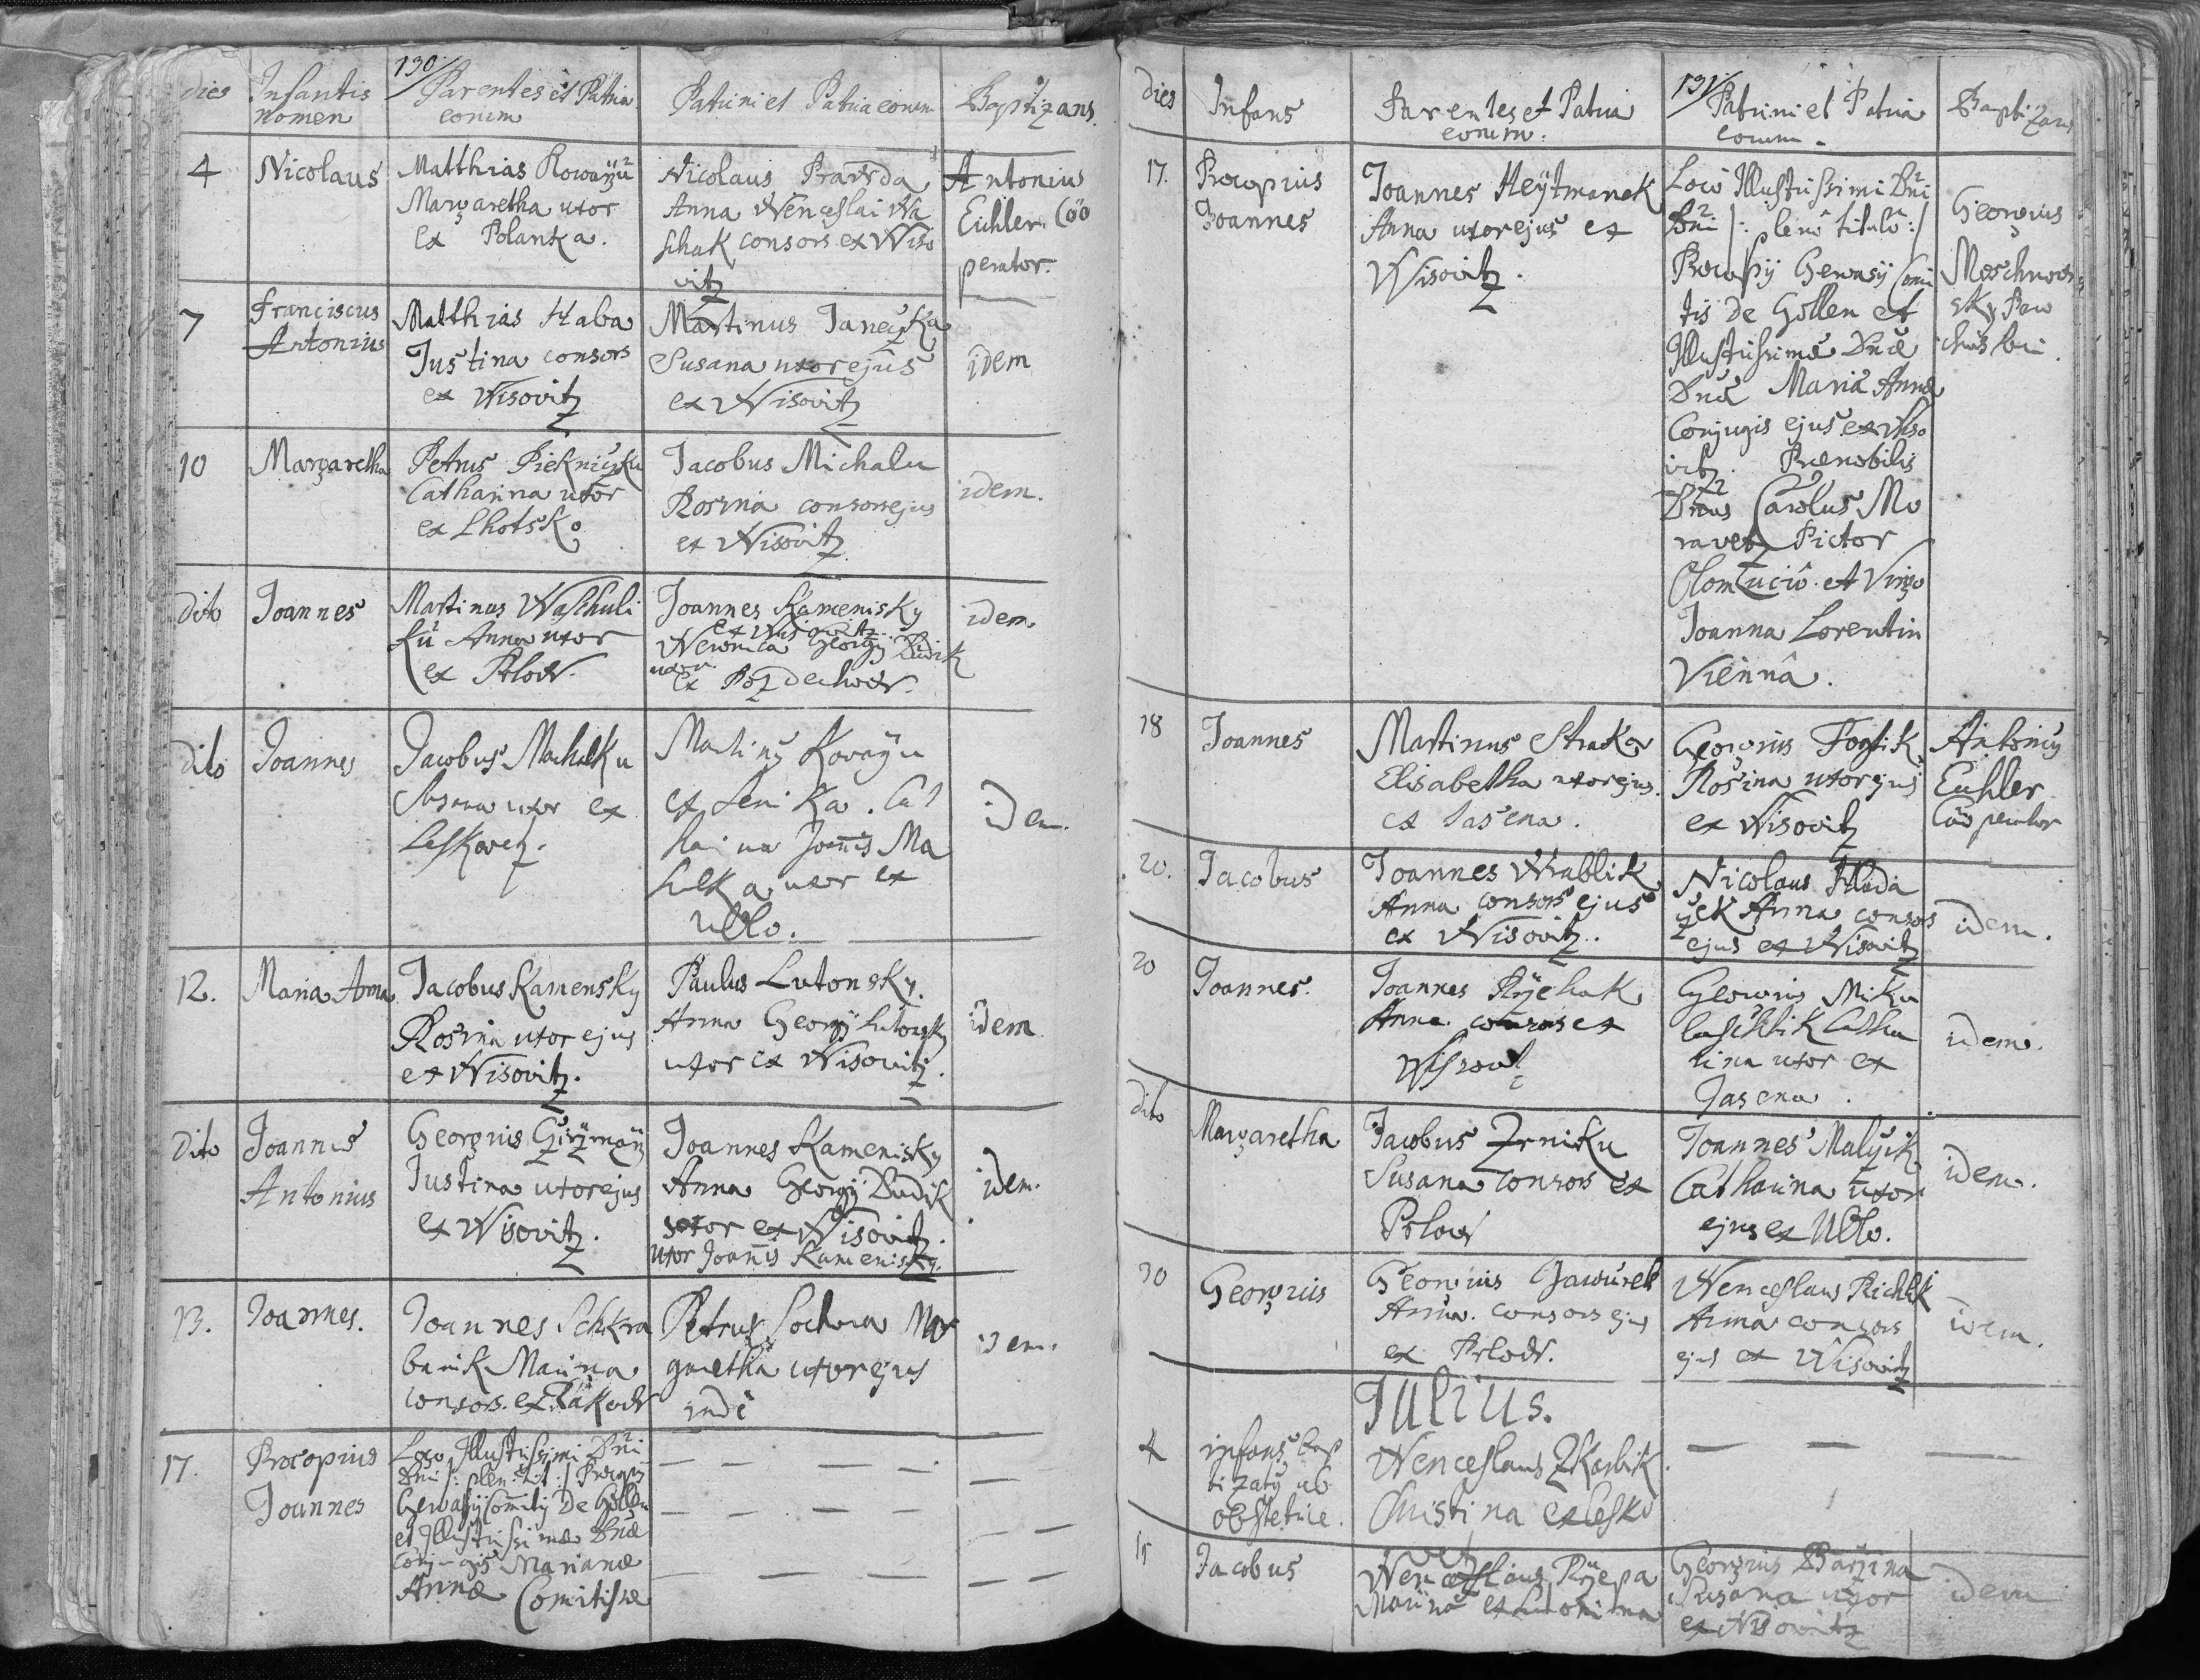 130
dies
Infantis
nomen
Parentes et Patria
eorum
Patrini et Patria eorum
Baptizans.
4
Nicolaus
Matthias
Margaretha uxor
ex Polanka.
Nicolaus Prawda
Anna Wenceslai Wa
schak consors ex Wiso
vitz
Antonius
Euhler. Coo
perator.
7
Franciscus
Antonius
Matthias Haba
Justina consors
ex Wisovitz
Martinus Janeczka
Susana uxor ejus
ex Wisovitz
idem
10
Margaretha
Petrus
Catharina uxor
ex Lhotsko
Jacobus Michalu
Rosina consors ejus
ex Wisovitz
idem.
dito
Joannes
Martinus Waschuli
ku Anna uxor
ex Prlow.
Joannes Kamenisky
ex Wisovitz
Weronica Georgij Budik
uxor
ex Pozdechow.
idem.
dito
Joannes
Jacobus Machalku
Susana uxor ex
Leskovetz.
Martinus
ex Seninka. Cat
harina Joannis Ma
chalka uxor ex
Ublo.
idem.
12.
Maria Anna
Jacobus Kamensky
Rosina uxor ejus
ex Wisovitz.
Paulus Lutonsky.
Anna Georgij Lutonsky
uxor ex Wisovitz.
idem
dito
Joannes
Antonius
Georgius
Justina uxor ejus
ex Wisovitz.
Joannes Kamenisky
Anna Georgij Budik
uxor ex Wisovitz.
uxor Joannis Kamenisky.
idem.
13.
Joannes.
Joannes Schkra
banik Marina
consors. ex Rakow
Petrus Sochora Mar
garetha uxor ejus
inde
idem.
17.
Procopius
Joannes
Loco Illustrissimi Dni
Dni /: plen: tit: / Procopij
Gervasij Comitis De Gollen
et Illustrissimae Dnae
conjugis Marianae
Annae Comitissae
131
Dies
Infans
Parentes et Patria
eorum:
Patrini et Patria
eorum.
Baptizans
17.
Procopius
Joannes
Joannes Heytmanek
Anna uxor ejus ex
Wisovitz.
Loco Illustrissimi Dni
Dni /: pleno titulo :/
Procopij Gervasij Comi
tis de Gollen et
Illustrissimae Dnae
Dnae Mariae Annae
Conjugis ejus ex Wiso
vitz. Praenobilis
Dnus Carolus Mo
ravetz Pictor
Olomucio. et Virgo
Joanna Lorentin
Vienna.
Georgius
18
Joannes
Martinus Straka
Elisabetha uxor ejus.
ex Jasena.
Georgius Fogtik
Rosina uxor ejus
ex Wisovitz
Antonius
Euhler
Cooperator
20.
Jacobus
Joannes Wrablik
Anna consors ejus
ex Wisovitz.
Nicolaus Hlada
czek Anna consors
ejus ex Wisovitz
idem.
20
Joannes.
Joannes Rzehak
Anna. consors ex
Georgius Miku
laschtik Catha
rina uxor ex
Jasena.
idem.
dito
Margaretha
Jacobus Zrniku
Susana consors ex
Prlow
Joannes Malczik
Catharina uxor
ejus ex Ublo.
idem.
30
Georgius
Georgius Jawurek
Anna. consors ejus
ex Prlow.
Wenceslaus Richlik
Anna consors
ejus ex Wisovitz
idem.
Julius.
4
infans bap
tizatus ab
obstetrice.
Wenceslaus Zkarbik.
Christina ex Lesko
vetz
15
Jacobus
Wenceslaus Rzepa
Marina
Georgius Barzina
Susana uxor
ex Wisovitz
idem